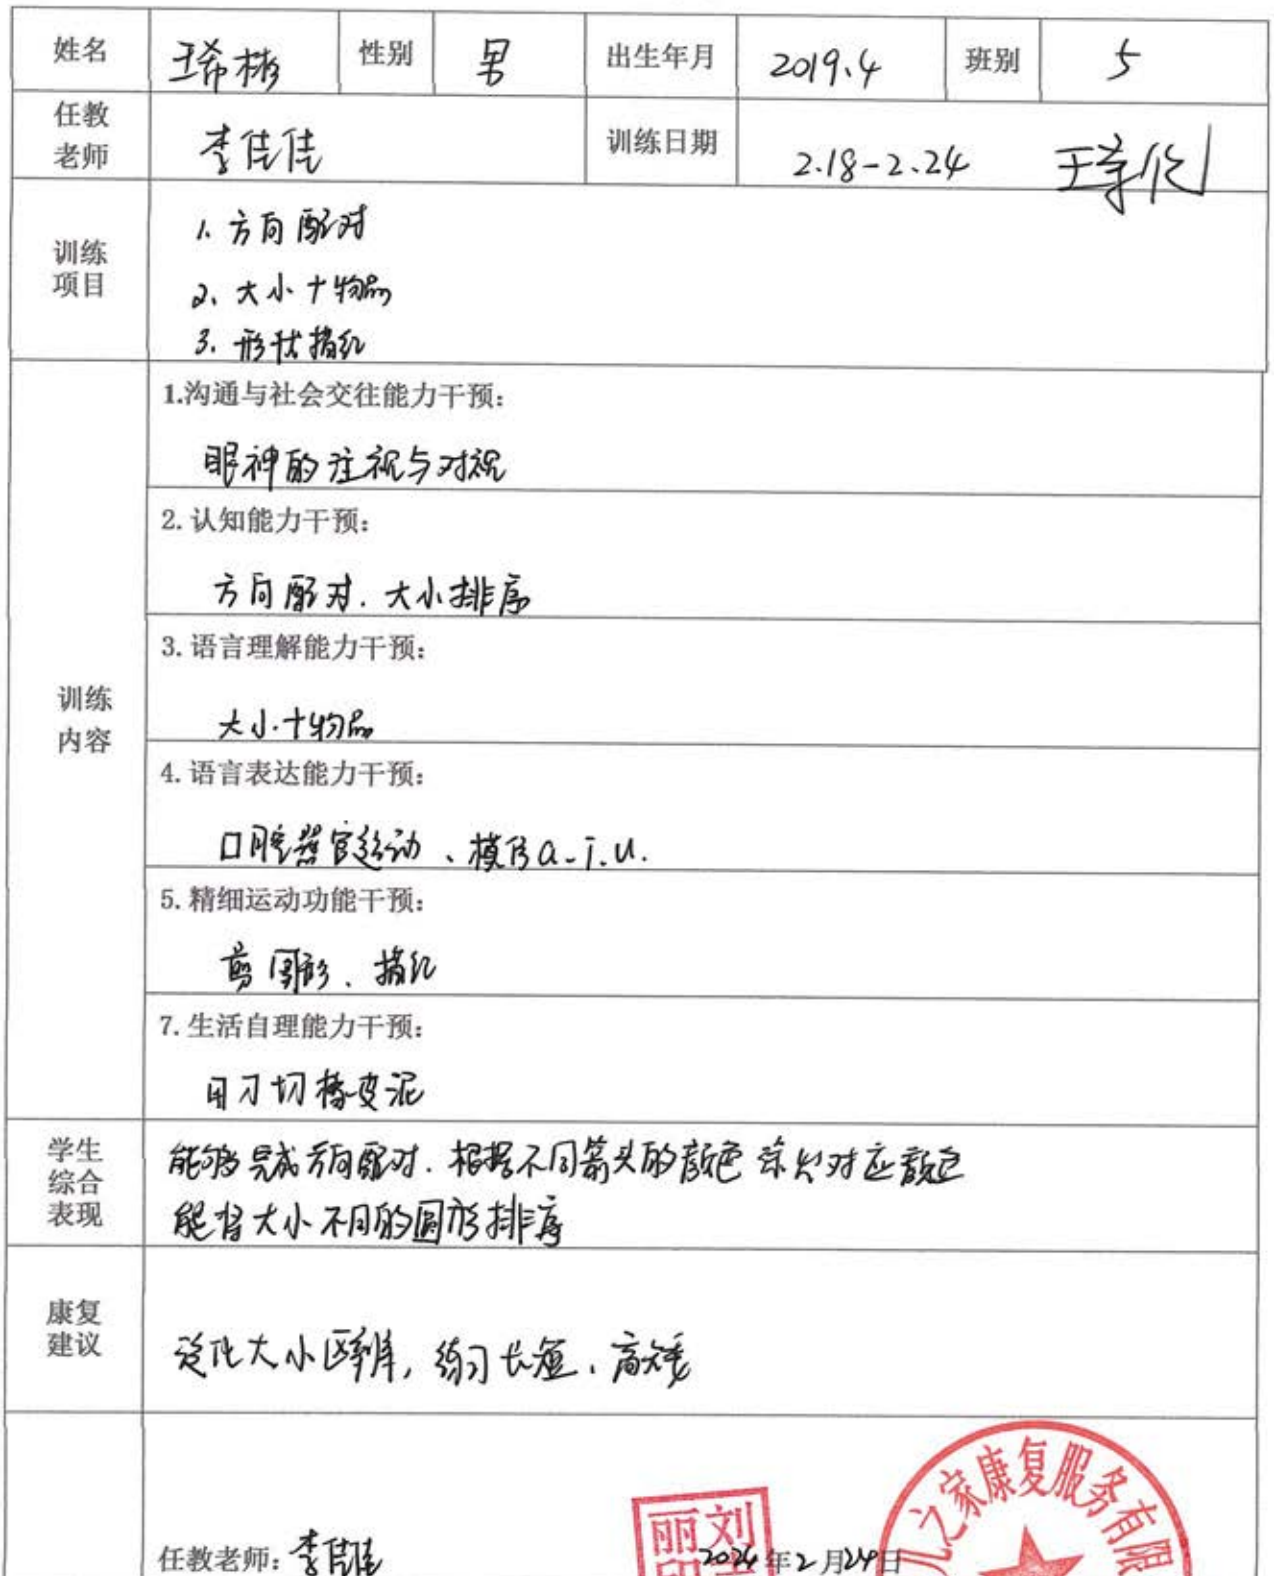 姓名 王希彬 性别 男 出生年月 2019.4 班别 5
任教老师 李佳佳 训练日期 2.18-2.24
训练项目
1. 方向配对
2、大小+物品
3. 形状描红
训练内容
1.沟通与社会交往能力干预:
眼神的注视与对视
2. 认知能力干预:
方向配对. 大小排序
3. 语言理解能力干预:
大小+物品
4. 语言表达能力干预:
口腔器官运动、模仿a-i.u.
5. 精细运动功能干预:
剪圆形、描红
7. 生活自理能力干预:
用刀切橡皮泥
学生综合表现
能够完成方向配对. 根据不同箭头的颜色涂出对应颜色
能将大小不同的圆形排序
康复建议
泛化大小区辨, 练习长短、高矮
儿之家康复服务有限
丽 刘
任教老师: 李佳佳 2024年2月24日